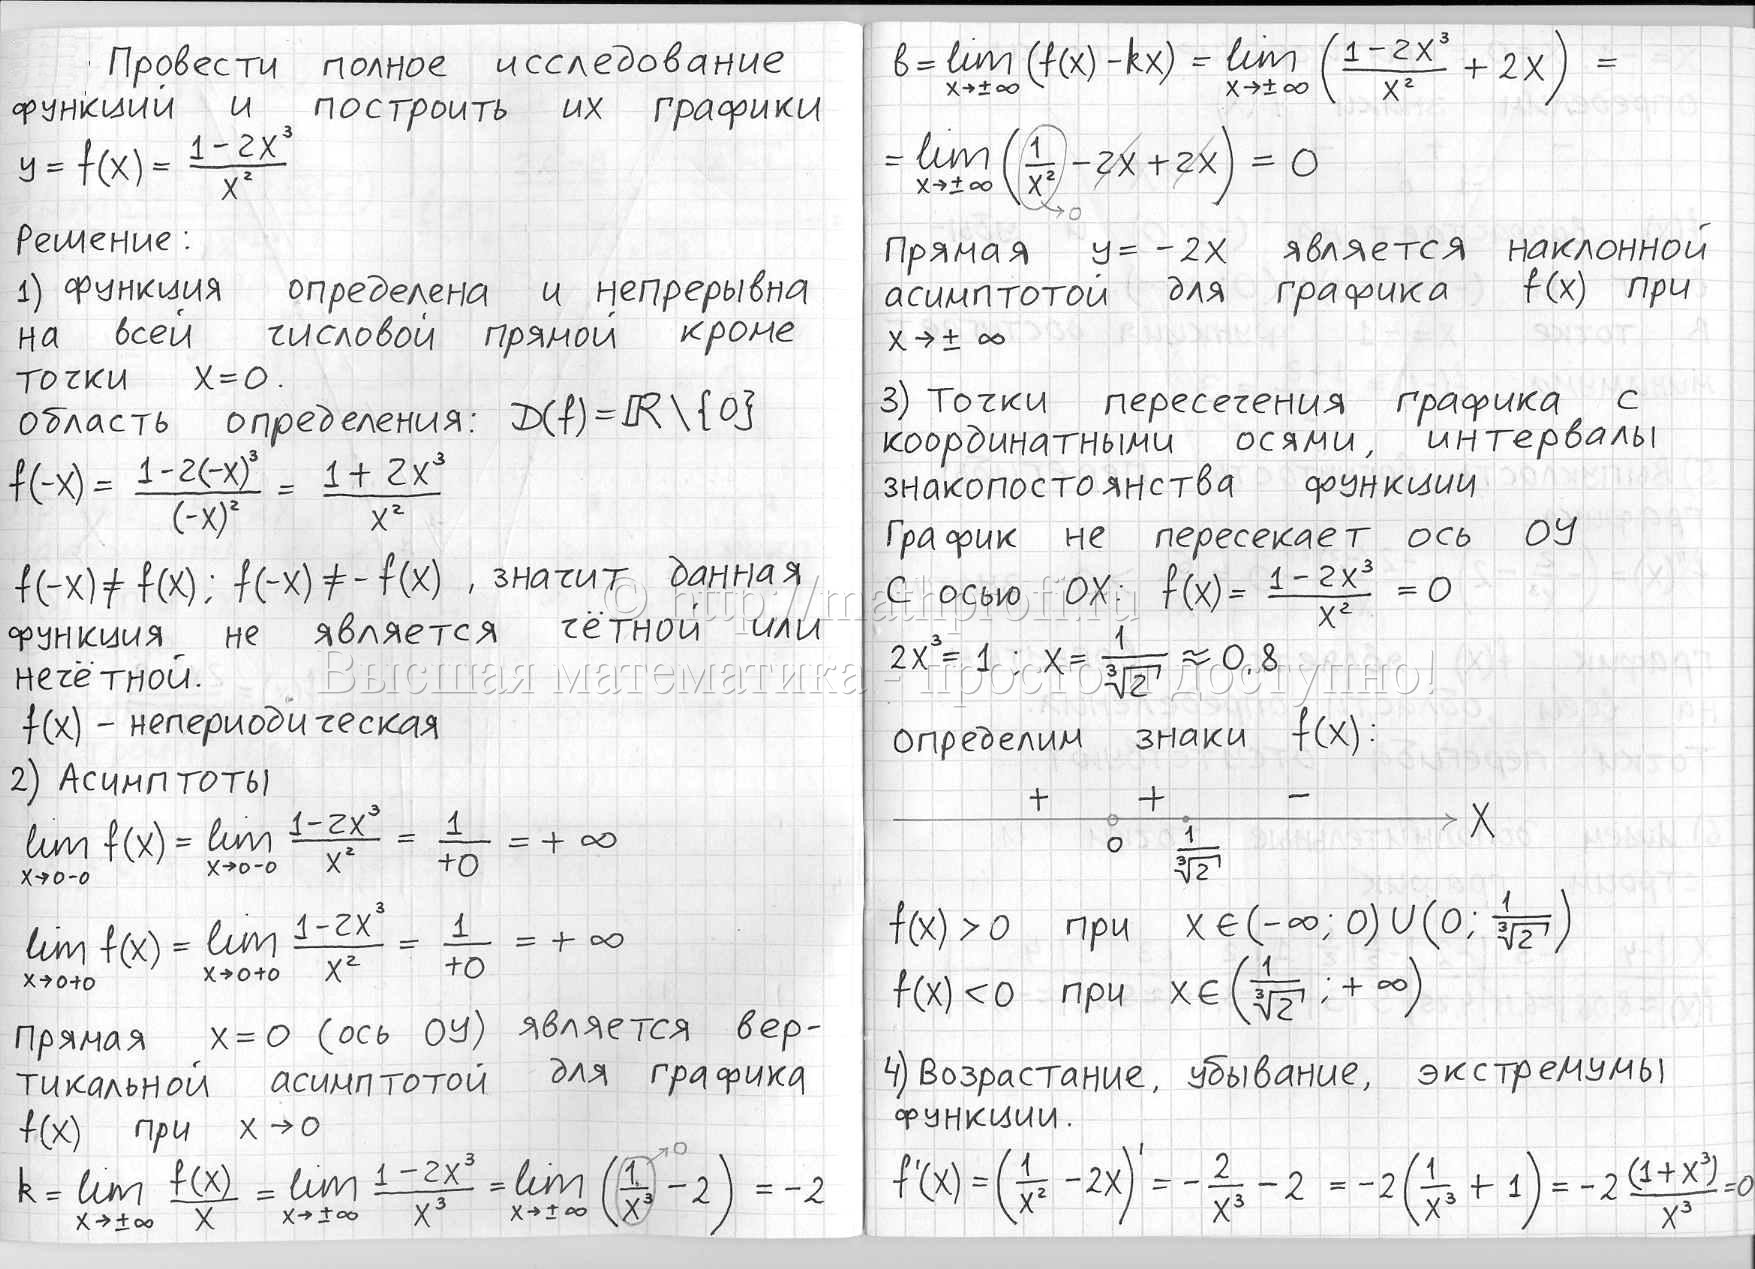 Провести полное исследование
функций и построить их графики
y = f(x) = (1-2x³)/x²
Решение:
1) Функция определена и непрерывна
на всей числовой прямой кроме
точки x=0.
область определения: D(f) = ℝ\{0}
f(-x) = (1-2(-x)³)/(-x)² = (1+2x³)/x²
f(-x) ≠ f(x); f(-x) ≠ -f(x), значит данная
функция не является чётной или
нечётной.
f(x) – непериодическая
2) Асимптоты
lim x→0-0 f(x) = lim x→0-0 (1-2x³)/x² = 1/+0 = +∞
lim x→0+0 f(x) = lim x→0+0 (1-2x³)/x² = 1/+0 = +∞
Прямая x=0 (ось OY) является вер-
тикальной асимптотой для графика
f(x) при x→0
k = lim x→±∞ f(x)/x = lim x→±∞ (1-2x³)/x³ = lim x→±∞ (1/x³ →0 - 2) = -2
b = lim x→±∞ (f(x) - kx) = lim x→±∞ ((1-2x³)/x² + 2x) =
= lim x→±∞ (1/x² →0 - 2x + 2x) = 0
Прямая y = -2x является наклонной
асимптотой для графика f(x) при
x→±∞
3) Точки пересечения графика с
координатными осями, интервалы
знакопостоянства функции
График не пересекает ось OY
С осью OX: f(x) = (1-2x³)/x² = 0
2x³ = 1; x = 1/∛2 ≈ 0.8
определим знаки f(x):
+ + −
0 1/∛2 X
f(x) > 0 при x∈(-∞; 0)∪(0; 1/∛2)
f(x) < 0 при x∈(1/∛2; +∞)
4) Возрастание, убывание, экстремумы
функции.
f'(x) = (1/x² - 2x)' = -2/x³ - 2 = -2(1/x³ + 1) = -2(1+x³)/x³ = 0
© http://mathprofi.ru
Высшая математика - просто и доступно!